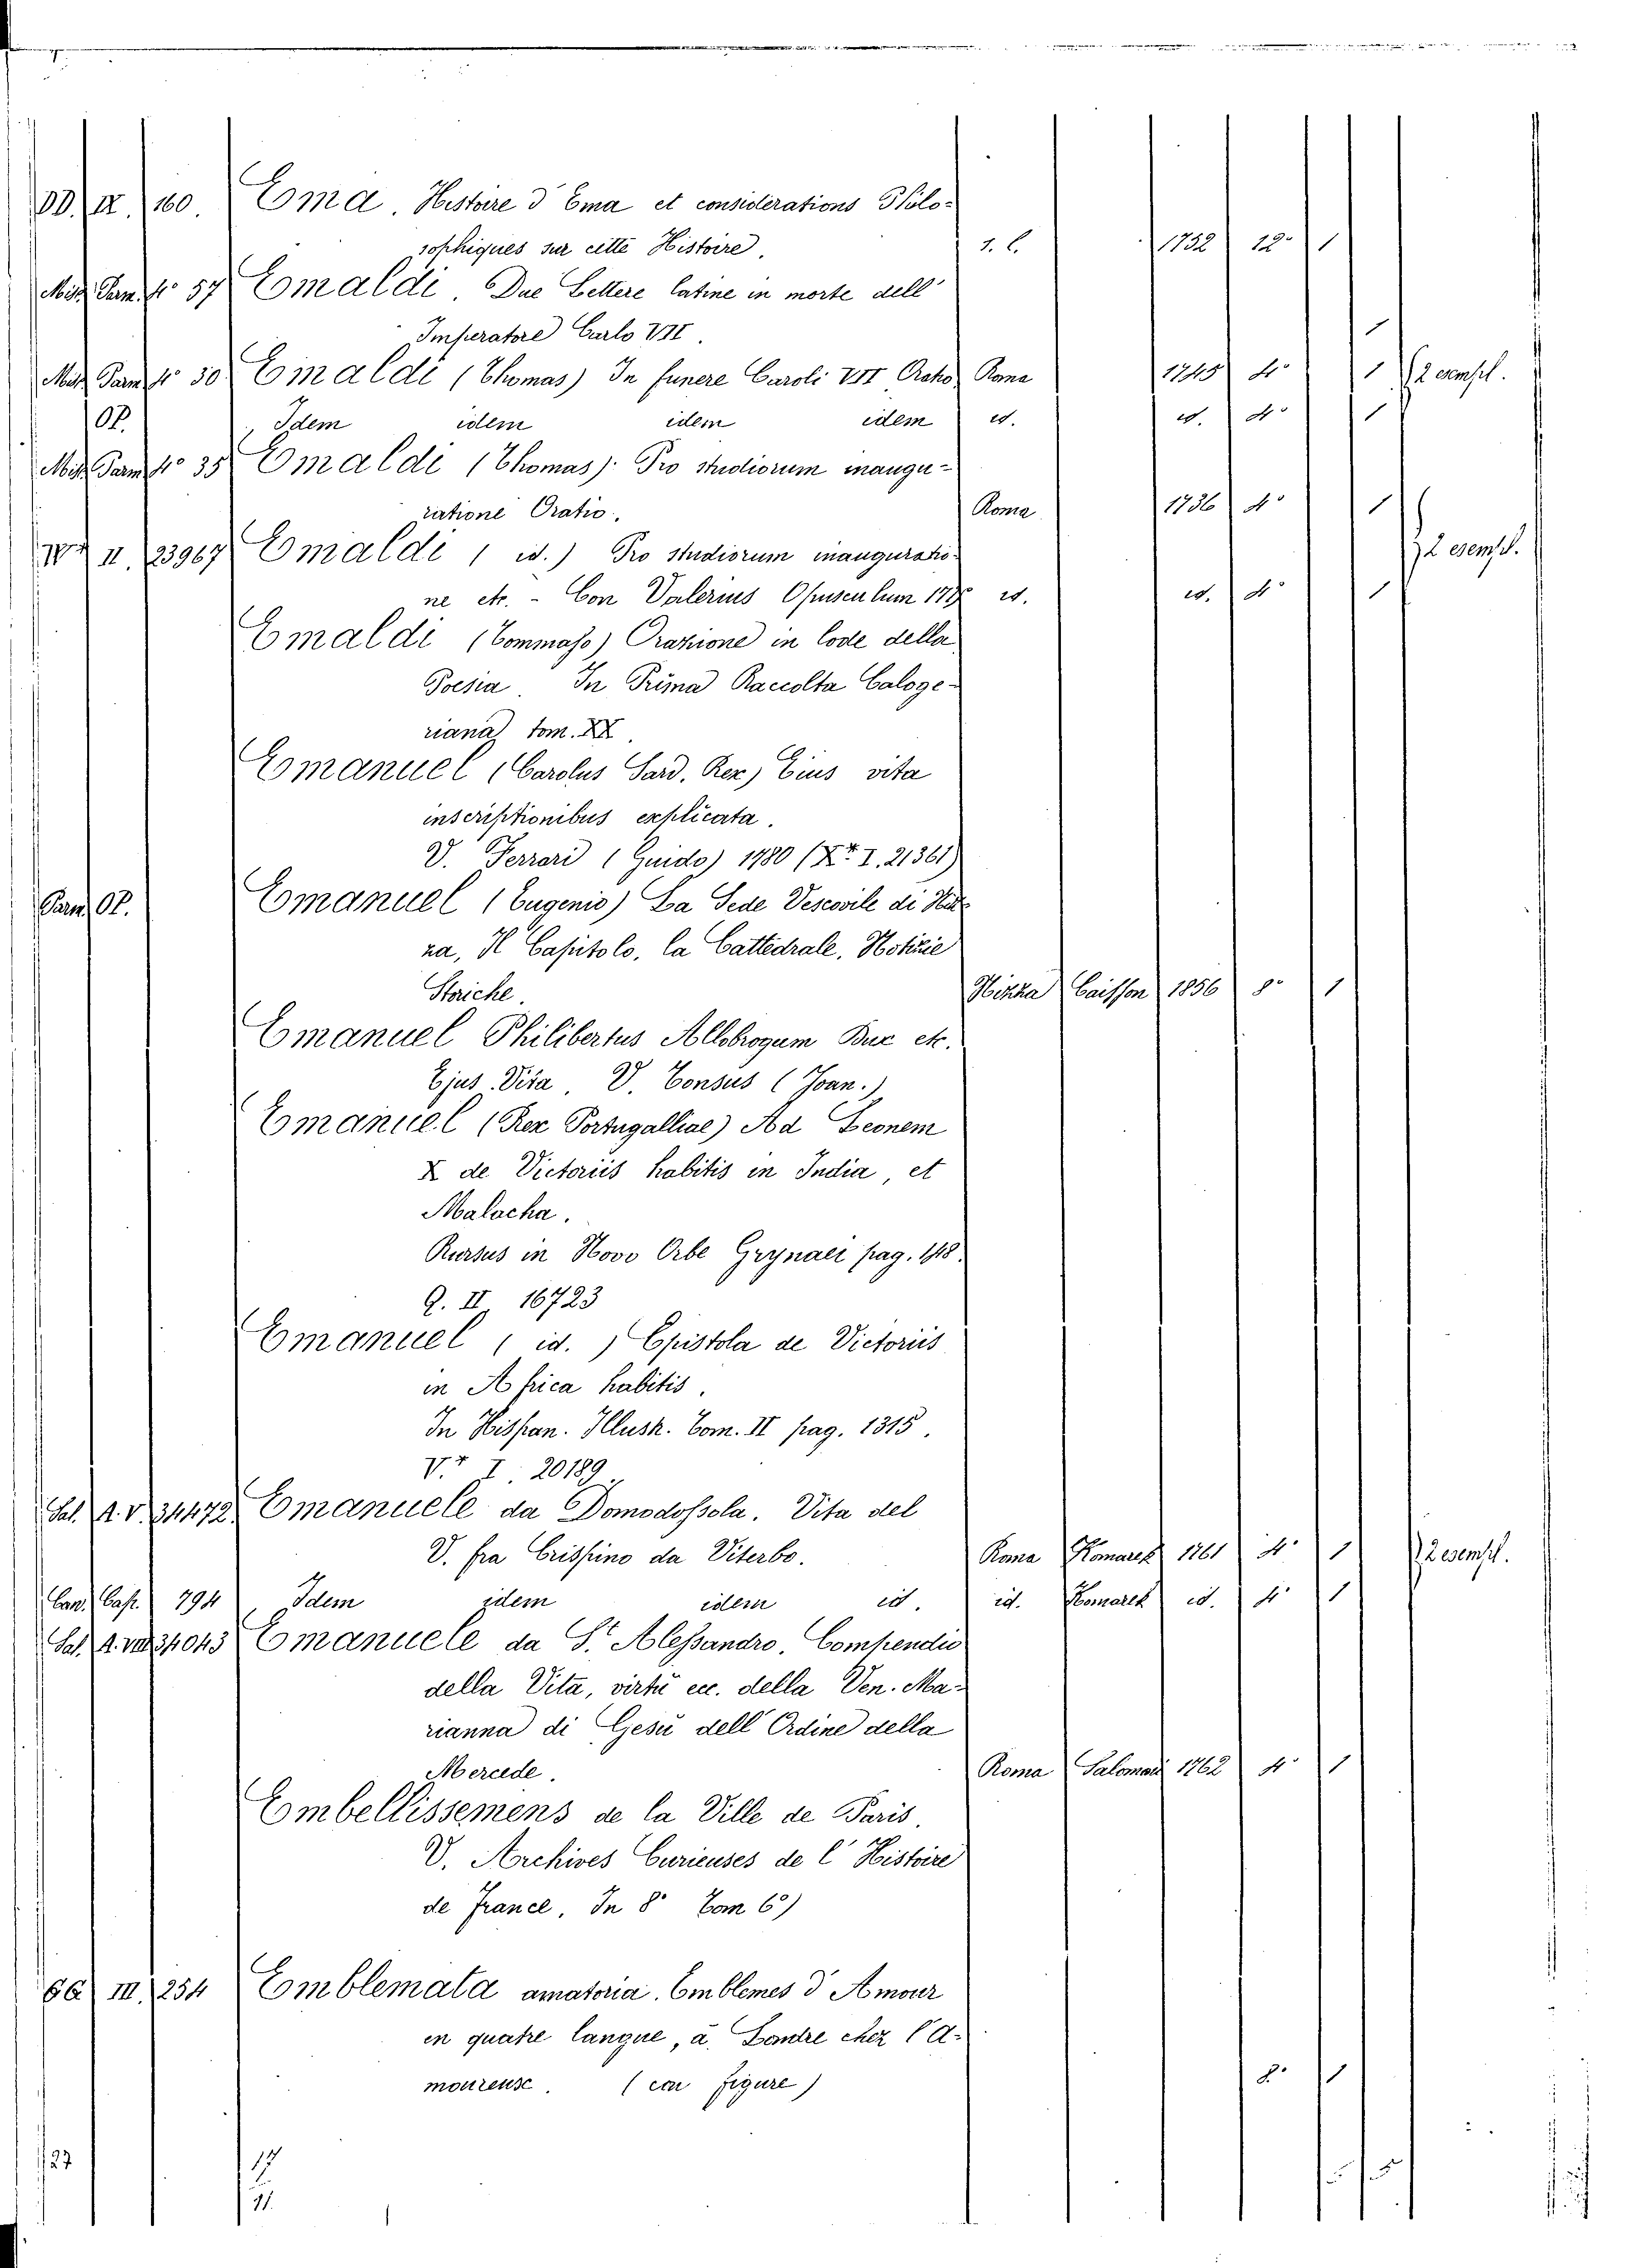 DD. IX. 160. Ema. Histoire d'Ema et considerations Philo-
sophiques sur cette Histoire. s. l. 1752 12° 1
Misc. Parm. 4° 57 Emaldi. Due Lettere latine in morte dell'
Imperatore Carlo VII. 1
Misc. Parm. 4° 30 Emaldi (Thomas) In funere Caroli VII Oratio Roma 1745 4° 1 2 esempl.
OP. Idem idem idem idem id. id. 4° 1
Misc. Parm. 4° 35 Emaldi (Thomas). Pro studiorum inaugu-
ratione Oratio. Roma 1736 4° 1
II. 23967 Emaldi (id.) Pro studiorum inauguratio- 2 esempl.
ne etc. - Con Valerius Opusculum id. id. 4° 1
Emaldi (Tommaso) Orazione in lode della
Poesia. In Prima Raccolta Caloge-
riana tom. XX.
Emanuel (Carolus Sard. Rex) Eius vita
inscriptionibus explicata.
V. Ferrari (Guido) 1780 (X.* I. 21361)
Parm. OP. Emanuel (Eugenio) La Sede Vescovile di Niz-
za, Il Capitolo, la Cattedrale, Notizie
Storiche. Nizza Caisson 1856 8° 1
Emanuel Philibertus Allobrogum Dux etc.
Ejus Vita. V. Tonsus (Joan.)
Emanuel (Rex Portugalliae) Ad Leonem
X de Victoriis habitis in India, et
Malacha.
Rursus in Novo Orbe Grynaei pag. 148.
Q. II. 16723
Emanuel (id.) Epistola de Victoriis
in Africa habitis.
In Hispan. Illustr. Tom. II pag. 1315.
V.* I. 20189.
Sal. A. V. 34472. Emanuele da Domodossola. Vita del
V. fra Crispino da Viterbo. Roma Komarek 1761 4° 1 2 esempl.
Can. Cap. 794 Idem idem idem id. id. Komarek id. 4° 1
Sal. A. VIII. 34043 Emanuele da S.t Alessandro. Compendio
della Vita, virtù ecc. della Ven. Ma-
rianna di Gesù dell'Ordine della
Mercede. Roma Salomoni 1762 4° 1
Embellissemens de la Ville de Paris.
V. Archives Curieuses de l'Histoire
de France. In 8° Tom 6°)
GG III. 254 Emblemata amatoria. Emblemes d'Amour
en quatre langue, a. Londre chez l'A-
moureuse. (con figure) 8° 1
27 17
21.